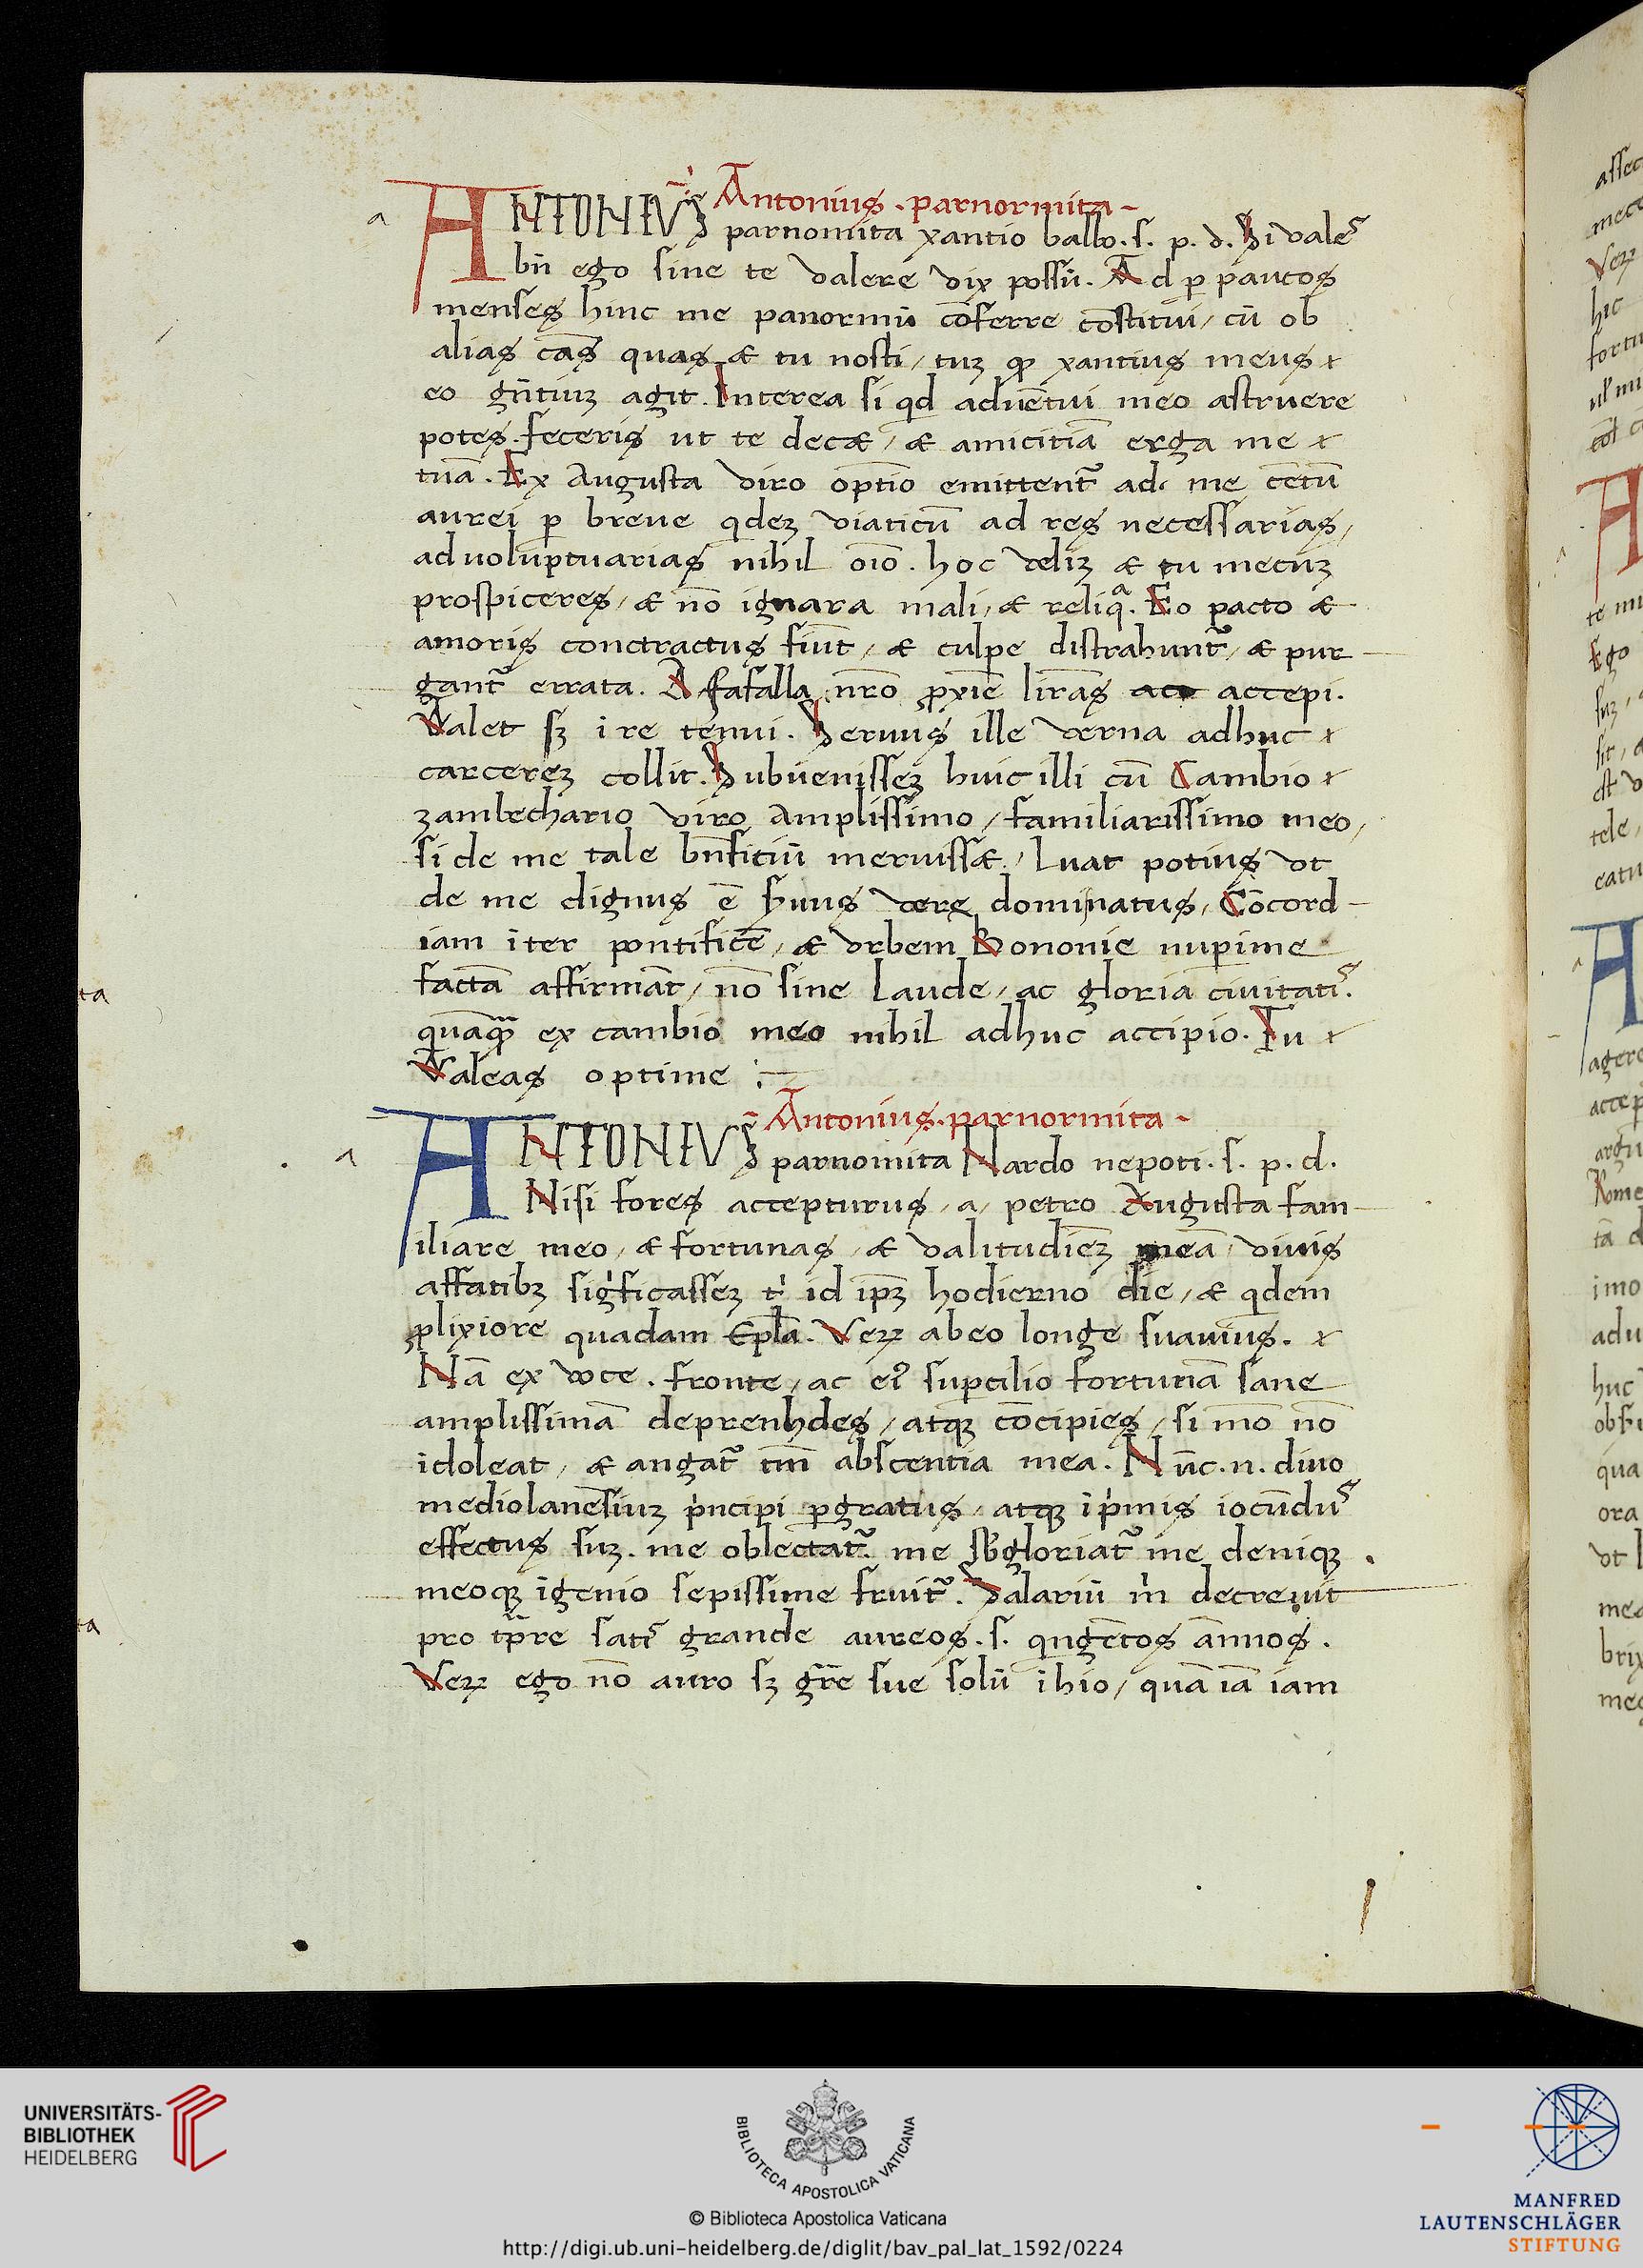 Antonius . parnormita -
ANTONIVS parnomita xantio ballo . s . p . d . Si valeˢ
bn̄ ego sine te valere vix possū . Ad ꝑ paucos
menses hinc me panormū cōferre cōstitui / cū ob
alias cās quas & tu nosti / tuꝫ ꝙ xantius meus
eo gn̄tiuꝫ agit . Interea si qd aduētui meo astruere
potes . feceris ut te decet / & amicitiā erga me
tuā . Ex Augusta viro optīo emittent᷑ ad me cētū
aurei ꝑ breue qdeꝫ viaticū ad res necessarias /
ad voluptuarias nihil oīo . hoc veliꝫ & tu mecuꝫ
prospiceres / & nō ignara mali / & reliqᵃ . Eo pacto &
amoris conctractus fiūt / & culpe distrahunt᷑ / & pur
gant᷑ errata . A fafalla nr̄o ꝓxīe liras accepi .
Valet sꝫ ī re tenui . Seruus ille verna adhuc
carcereꝫ collit . Subuenisseꝫ huic illi cū Cambio
zambechario viro Amplissimo / familiarissimo meo /
si de me tale bn̄fitiū meruisset / Luat potius vt
de me dignus ē suus dominatus / Cōcord
iam īter pontificē / & vrbem Bononie nuperime
factā affirmāt / nō sine laude / ac gloria ciuitatiˢ .
quāꝙ ex cambio meo nihil adhuc accipio . Tu
Valeas optime :
Antonius . parnormita -
ANTONIVS parnomita Nardo nepoti . s . p . d .
Nisi fores accepturus / a / petro Augusta fam
iliare meo / & fortunas / & valitudīeꝫ meā / viuis
affatibꝫ sigificasseꝫ tⁱ id ip̄ꝫ hodierno die / & qdem
ꝓlixiore quadam Epl̄a . Veꝝ ab eo longe suauius .
Nā ex voce . fronte / ac eiꝰ suꝑcilio fortunā sane
amplissimā deprenhdes / atqꝫ cōcipies / si mō nō
idoleat / & angat᷑ tm̄ abscentia mea . Nūc . n . diuo
mediolanēsiuꝫ pⁱncipi ꝑgratus / atqꝫ īpⁱmis iocūduˢ
effectus suꝫ . me oblectat᷑ . me sb̄gloriat᷑ me deniqꝫ
meoqꝫ īgenio sepissime fruit᷑ . Salariū m̄ decreuit
pro tp̄re satiˢ grande aureos . s . qngētos ānnos .
Veꝝ ego nō auro sꝫ gr̄e sue solū īhio / quā iā iam
UNIVERSITÄTS-
BIBLIOTHEK
HEIDELBERG
BIBLIOTECA APOSTOLICA VATICANA
© Biblioteca Apostolica Vaticana
http://digi.ub.uni-heidelberg.de/diglit/bav_pal_lat_1592/0224
MANFRED
LAUTENSCHLÄGER
STIFTUNG